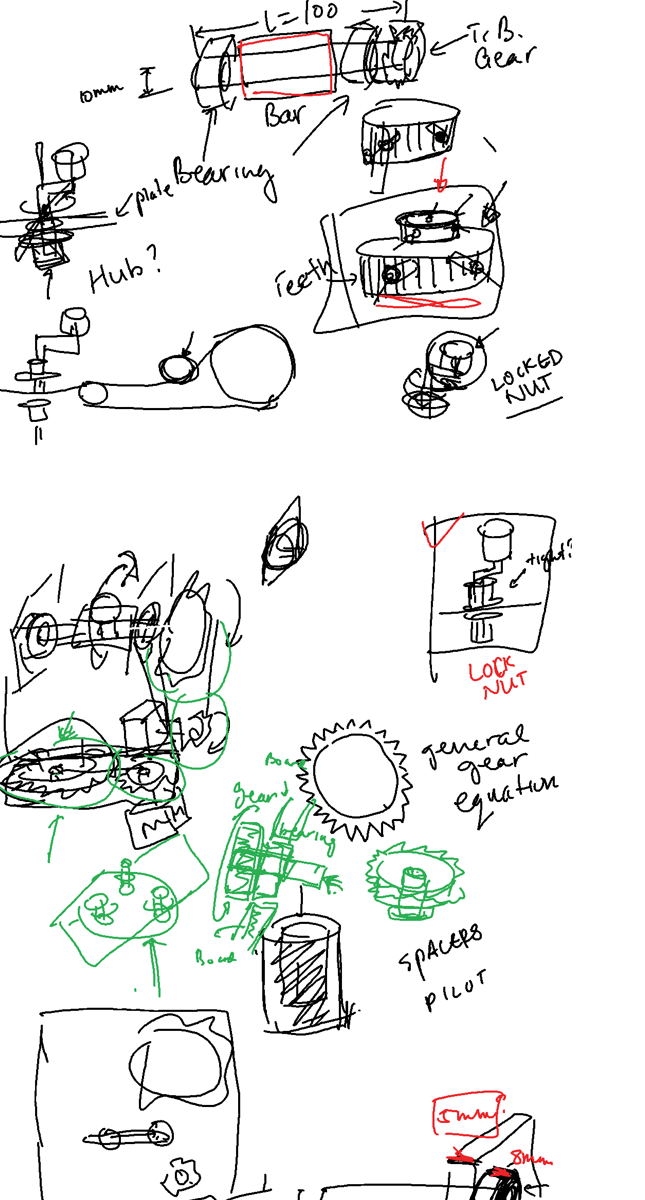 L=100
T.B.
Gear
10mm
Bar
Bearing
plate
Hub?
Teeth
LOCKED
NUT
tight?
LOCK
NUT
general
gear
equation
Board
gear
bearing
Board
SPACERS
PILOT
5mm?
8mm